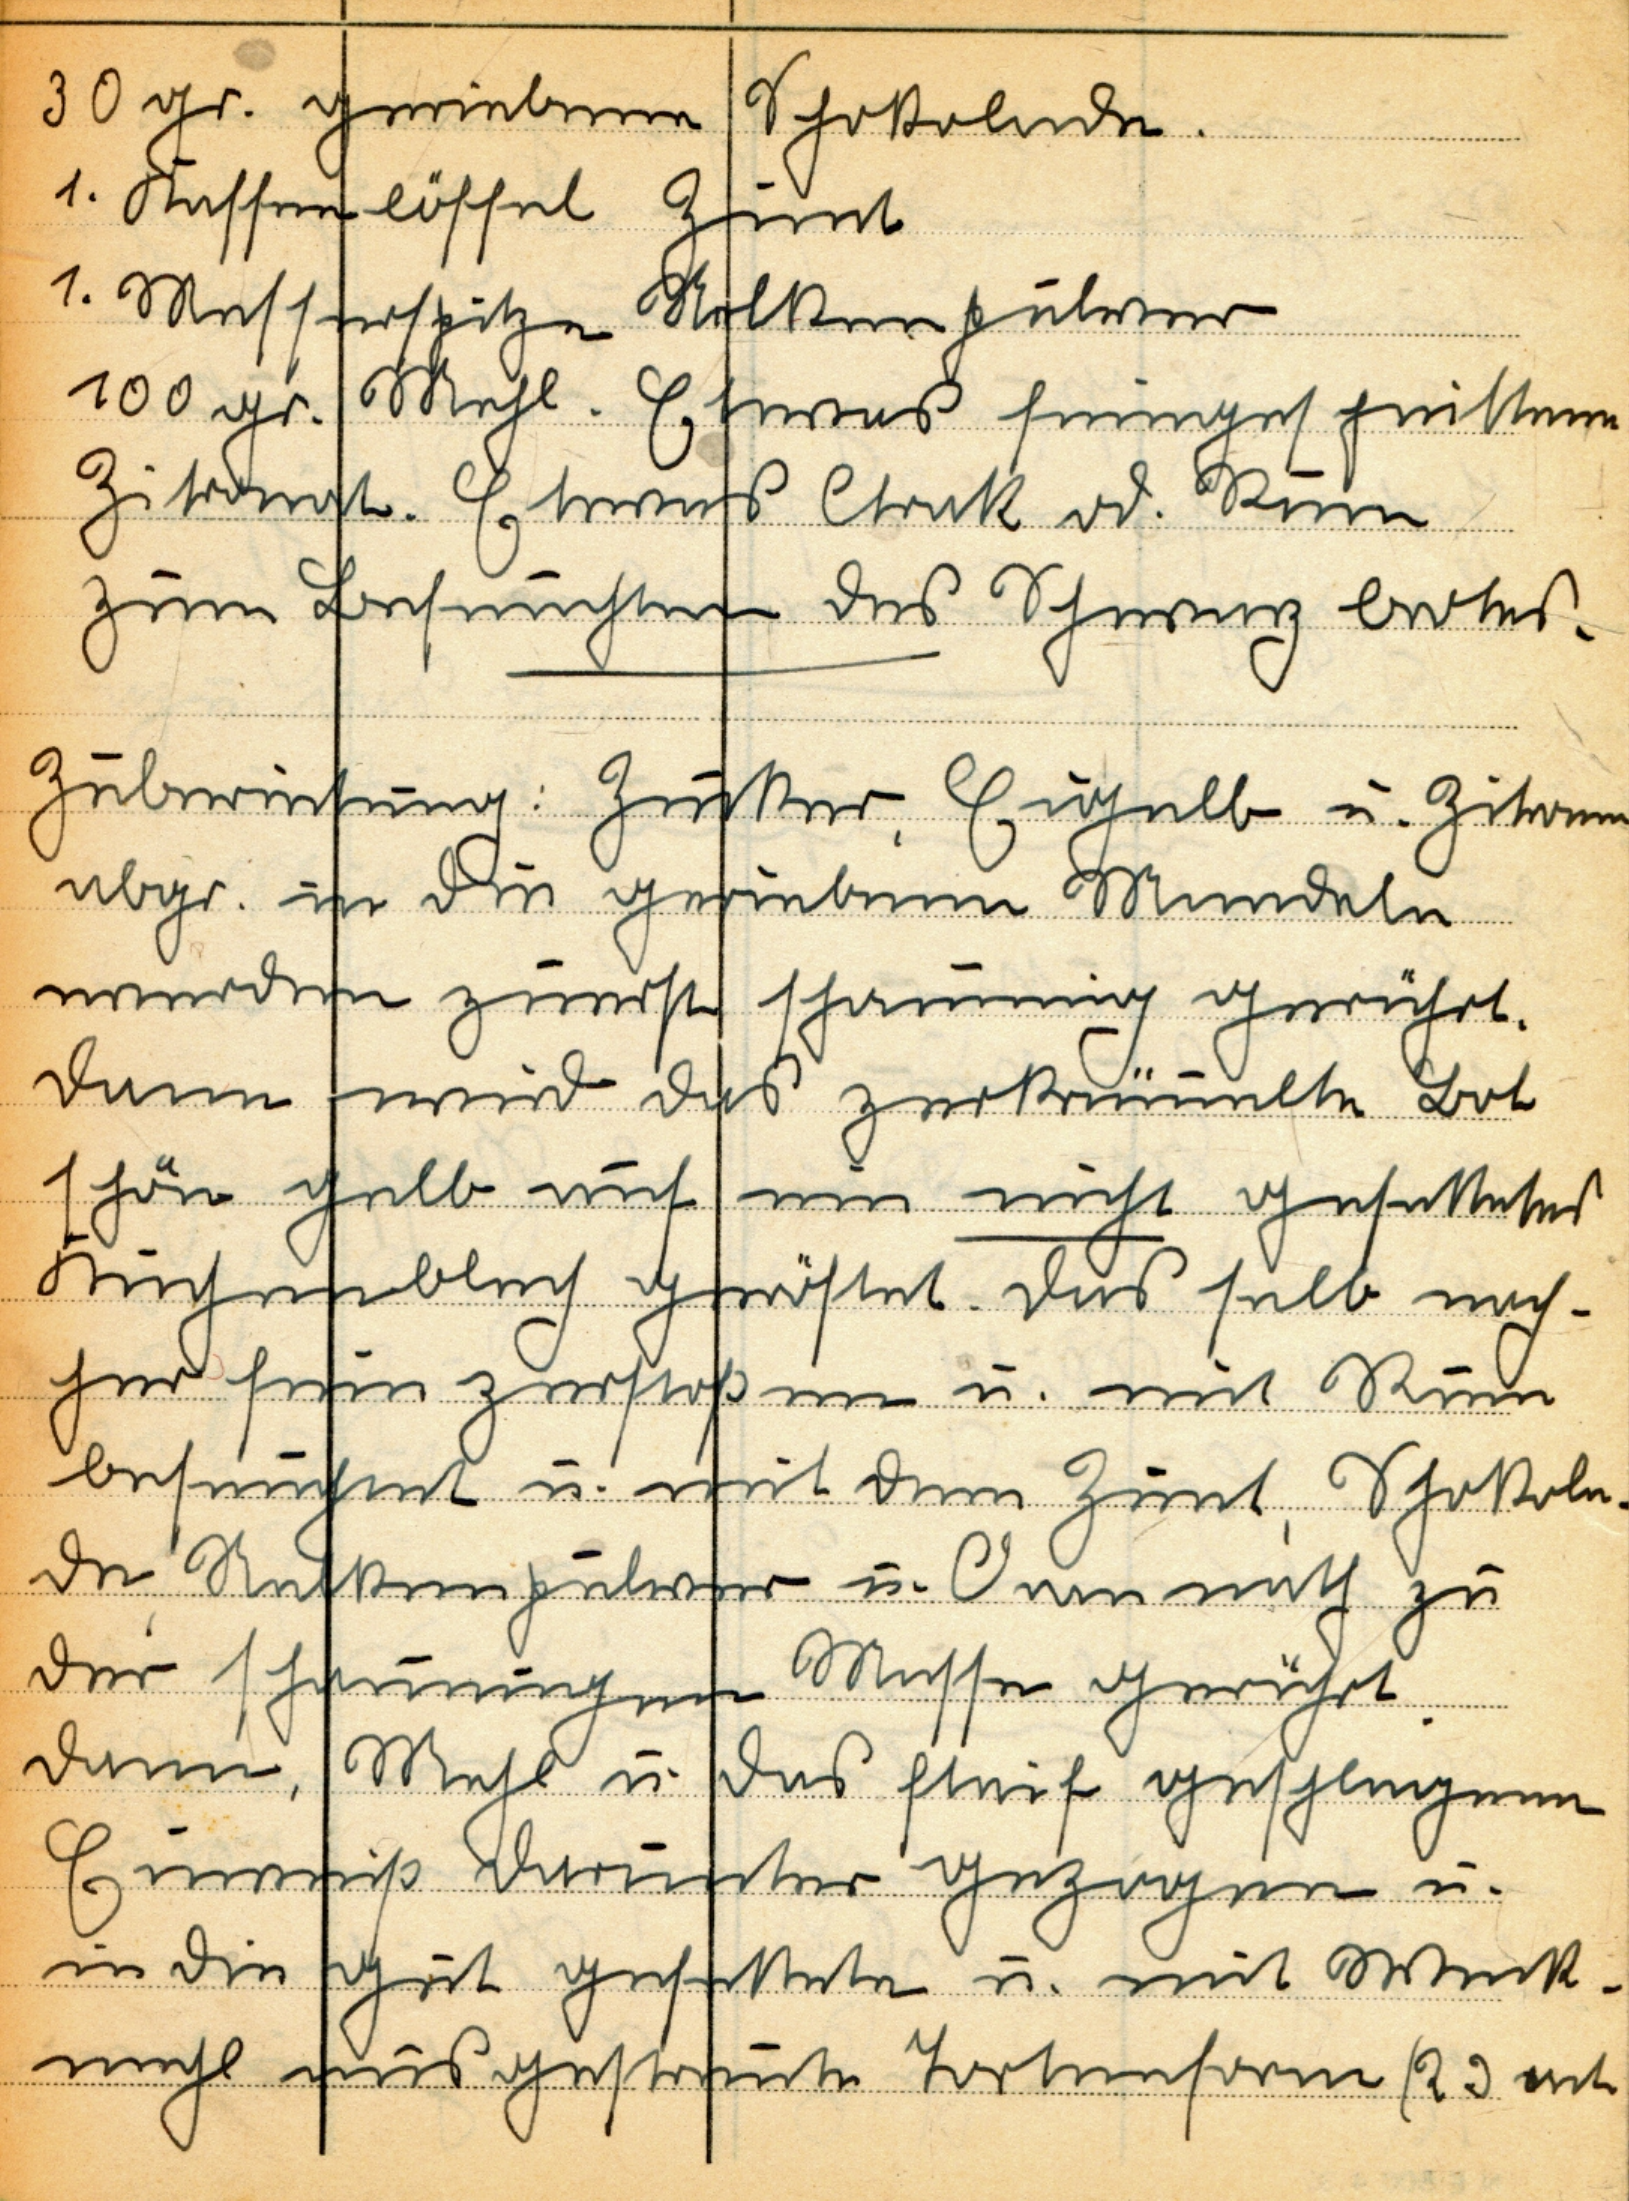 30 gr. geriebene Schokolade.
1. Kaffeelöffel Zimt
1. Messerspitze Nelkenpulver
100 gr. Mehl. Etwas feingeschnittenen
Zitronat. Etwas Arak od. Rum
zum Befeuchten des Schwarzbrotes.
Zubereitung: Zucker, Eigelb u. Zitronen
abgr. in die geriebenen Mandeln
werden zuerst schaumig gerührt.
Dann wird das zerkrümelte Brot
schön gelb auf ein nicht gefettetes
Kuchenblech geröstet. Das selb nach-
her fein zerstoßen u. mit Rum
befeuchtet u. mit dem Zimt, Schokola-
de, Nelkenpulver u. zu
der schaumigen Masse gerührt.
dann, Mehl u. das steif geschlagene
Eiweiß darunter gezogen u.
in die gut gefettete u. mit Weck-
mehl ausgestreute Tortenform